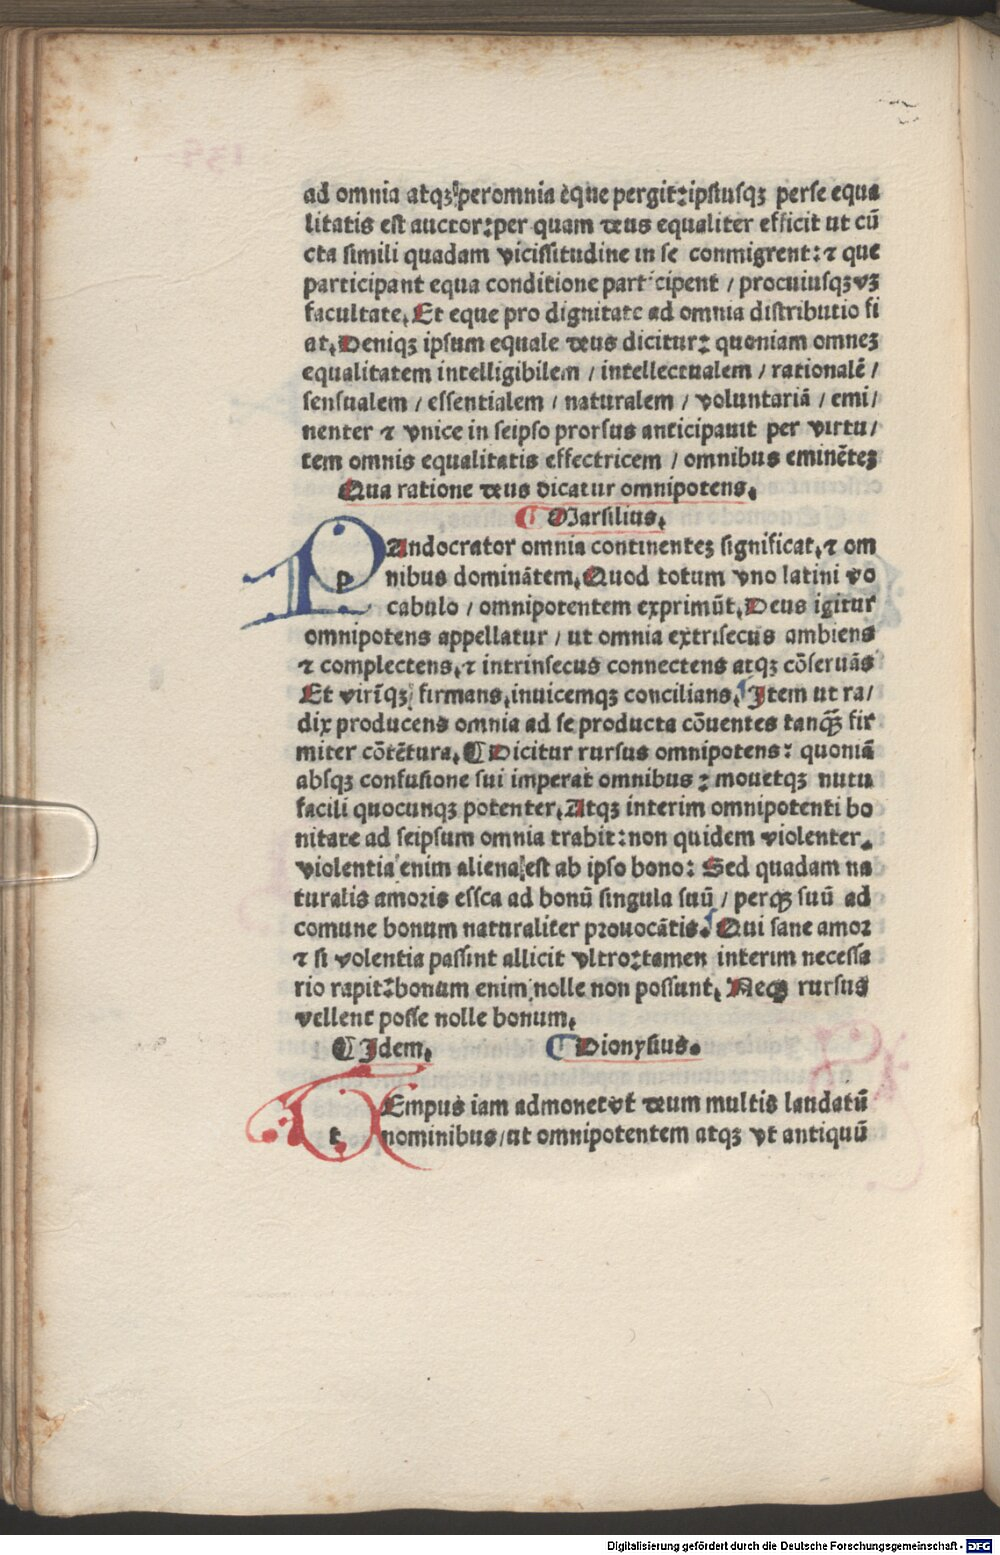 ad omnia atqꝫ peromnia eque pergit: ipsiusqꝫ perse equa
litatis est auctor: per quam deus equaliter efficit ut cū
cta simili quadam vicissitudine in se conmigrent: ⁊ que
participant equa conditione participent / procuiusqꝫ vꝫ
facultate. Et eque pro dignitate ad omnia distributio fi
at. Deniqꝫ ipsum equale deus dicitur: quoniam omneꝫ
equalitatem intelligibilem / intellectualem / rationalē /
sensualem / essentialem / naturalem / voluntariā / emi/
nenter ⁊ vnice in seipso prorsus anticipauit per virtu/
tem omnis equalitatis effectricem / omnibus eminēteꝫ
Qua ratione deus dicatur omnipotens.
¶ Marsilius.
p Andocrator omnia continenteꝫ significat. ⁊ om
nibus domināteꝫ. Quod totum vno latini vo
cabulo / omnipotentem exprimūt. Deus igitur
omnipotens appellatur / ut omnia extrisecus ambiens
⁊ complectens. ⁊ intrinsecus connectens atqꝫ cōseruās
Et virīqꝫ firmans. inuicemqꝫ concilians. Item ut ra/
dix producens omnia ad se producta cōuentes tanqꝫ fir
miter cōtētura. ¶ Dicitur rursus omnipotens: quoniā
absqꝫ confusione sui imperat omnibus: mouetqꝫ nutu
facili quocunqꝫ potenter. Atqꝫ interim omnipotenti bo
nitate ad seipsum omnia trahit: non quidem violenter.
violentia enim aliena est ab ipso bono: Sed quadam na
turalis amoris essca ad bonū singula suū / perqꝫ suū ad
comune bonum naturaliter prouocātis. Qui sane amor
⁊ si volentia passint allicit vltro: tamen interim necessa
rio rapit: bonum enim nolle non possunt. Neqꝫ rursus
vellent posse nolle bonum.
¶ Idem. ¶ Dionysius.
t Empus iam admonet vt deum multis laudatū
nominibus / ut omnipotentem atqꝫ vt antiquū
Digitalisierung gefördert durch die Deutsche Forschungsgemeinschaft - DFG